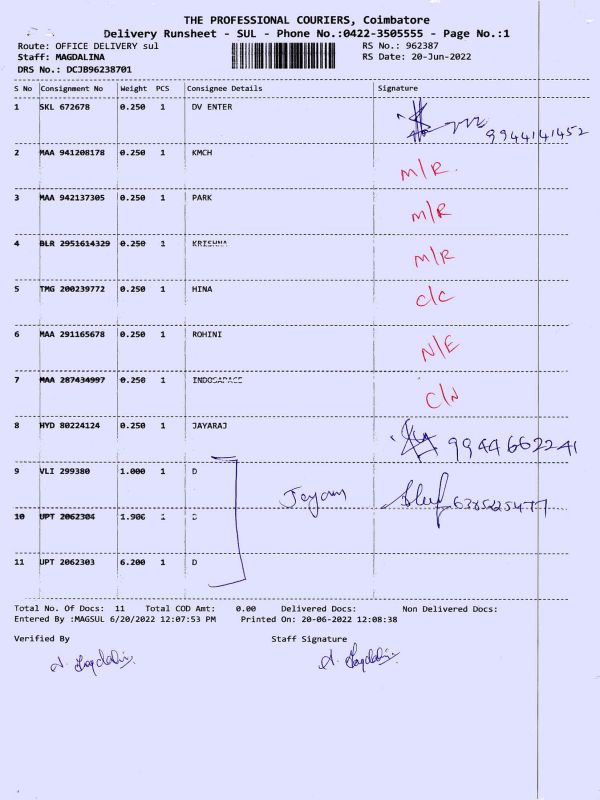 THE PROFESSIONAL COURIERS, Coimbatore
Delivery Runsheet - SUL - Phone No.:0422-3505555 - Page No.:1
Route: OFFICE DELIVERY sul RS No.: 962387
Staff: MAGDALINA RS Date: 20-Jun-2022
DRS No.: DCJB96238701
S No Consignment No Weight PCS Consignee Details Signature
1 SKL 672678 0.250 1 DV ENTER
9944141452
2 MAA 941208178 0.250 1 KMCH
M/R.
3 MAA 942137305 0.250 1 PARK
M/R
4 BLR 2951614329 0.250 1 KRISHNA
M/R
5 TMG 200239772 0.250 1 HINA
C/C
6 MAA 291165678 0.250 1 ROHINI
N/E
7 MAA 287434997 0.250 1 INDOSAPACE
C/N
8 HYD 80224124 0.250 1 JAYARAJ
9944662241
9 VLI 299380 1.000 1 D
Jeyam
10 UPT 2062304 1.900 1 D
11 UPT 2062303 6.200 1 D
Total No. Of Docs: 11 Total COD Amt: 0.00 Delivered Docs: Non Delivered Docs:
Entered By :MAGSUL 6/20/2022 12:07:53 PM Printed On: 20-06-2022 12:08:38
Verified By Staff Signature